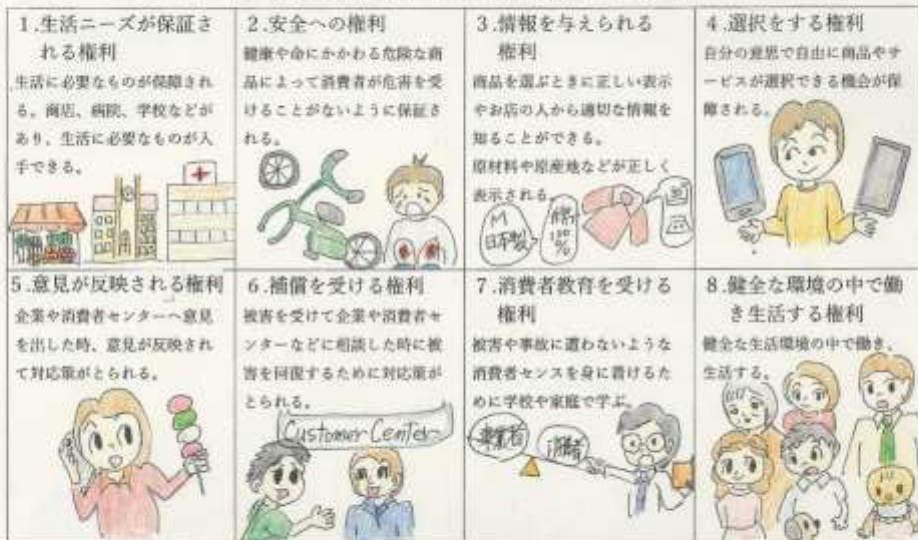 1.生活ニーズが保証さ
れる権利
生活に必要なものが保障され
る。商店、病院、学校などが
あり、生活に必要なものが入
手できる。
2.安全への権利
健康や命にかかわる危険な商
品によって消費者が危害を受
けることがないように保証さ
れる。
3.情報を与えられる
権利
商品を選ぶときに正しい表示
やお店の人から適切な情報を
知ることができる。
原材料や原産地などが正しく
表示される。
M
日本製
綿
100
%
4.選択をする権利
自分の意思で自由に商品やサ
ービスが選択できる機会が保
障される。
5.意見が反映される権利
企業や消費者センターへ意見
を出した時、意見が反映され
て対応策がとられる。
6.補償を受ける権利
被害を受けて企業や消費者セ
ンターなどに相談した時に被
害を回復するために対応策が
とられる。
Customer Center
7.消費者教育を受ける
権利
被害や事故に遭わないような
消費者センスを身に着けるた
めに学校や家庭で学ぶ。
事業者
消費者
8.健全な環境の中で働
き生活する権利
健全な生活環境の中で働き、
生活する。